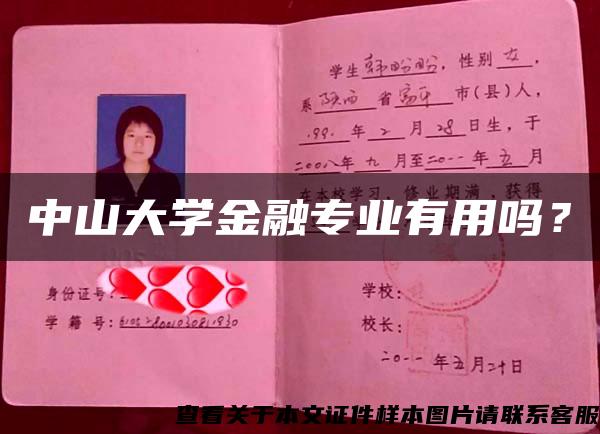 学生韩盼盼,性别女,
系陕西省富平市(县)人,
199 年2月28日生,于
二00八年九月至二0一一年五月
在本校学习,修业期满,获得
中山大学金融专业有用吗?
身份证号:
学籍号:
学校:
校长:
二0一一年五月二十日
查看关于本文证件样本图片请联系客服